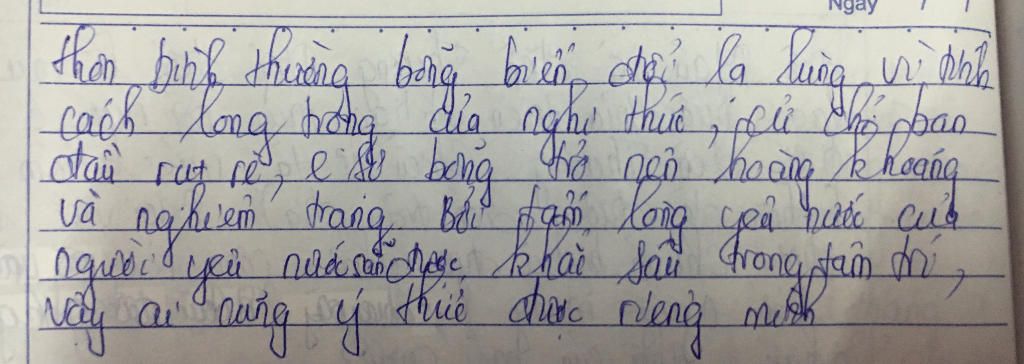 Ngày / /
thôn bình thường bỗng biến đổi lạ lùng vì tính
cách long trọng của nghi thức, cử chỉ ban
đầu rụt rè, e sợ bỗng trở nên hoàng khoáng
và nghiêm trang. Bởi tấm lòng yêu nước của
người yêu nước sẵn được khắc sâu trong tâm trí,
vậy ai cũng ý thức được riêng mình